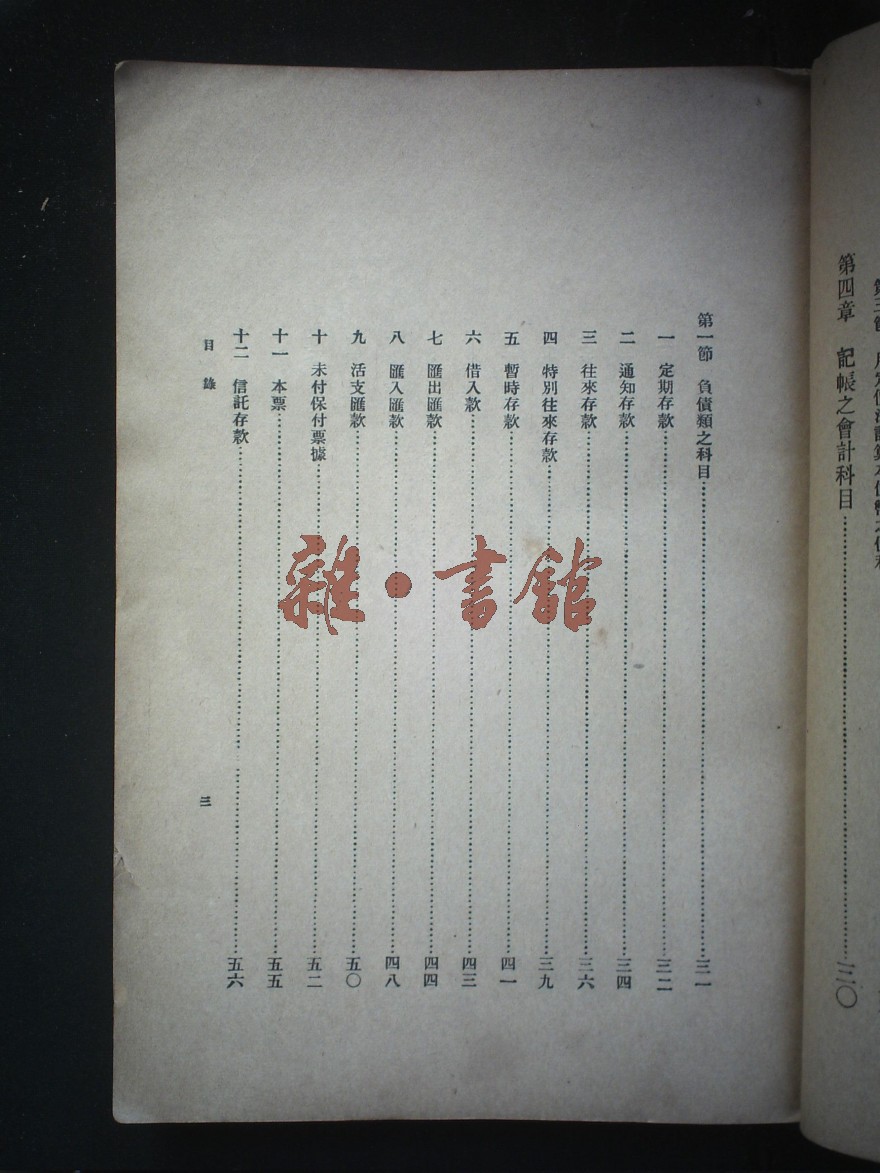 第四章　記帳之會計科目……三〇
第一節　負債類之科目……三一
一　定期存款……三二
二　通知存款……三四
三　往來存款……三六
四　特別往來存款……三九
五　暫時存款……四一
六　借入款……四三
七　匯出匯款……四四
八　匯入匯款……四八
九　活支匯款……五〇
十　未付保付票據……五二
十一　本票……五五
十二　信託存款……五六
目錄
三
雜·書館